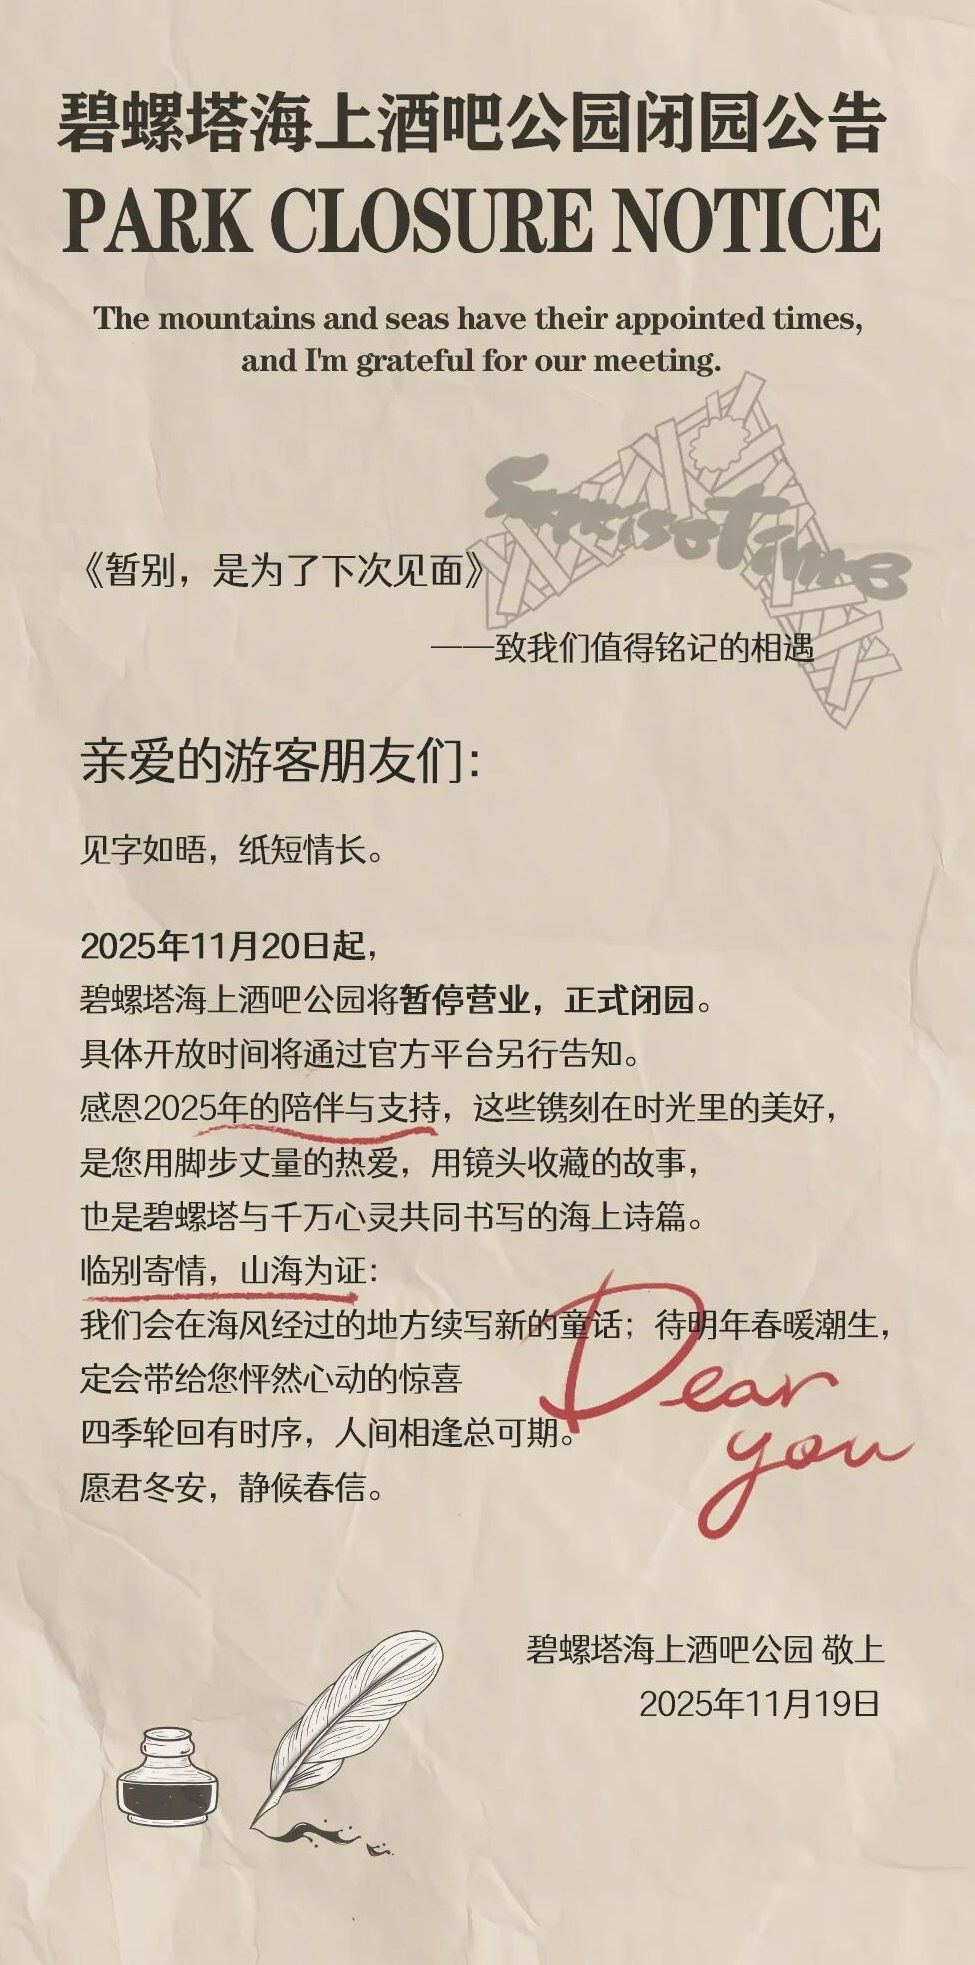 碧螺塔海上酒吧公园闭园公告
PARK CLOSURE NOTICE
The mountains and seas have their appointed times,
and I'm grateful for our meeting.
Sunrise Time
《暂别，是为了下次见面》
——致我们值得铭记的相遇
亲爱的游客朋友们：
见字如晤，纸短情长。
2025年11月20日起，
碧螺塔海上酒吧公园将暂停营业，正式闭园。
具体开放时间将通过官方平台另行告知。
感恩2025年的陪伴与支持，这些镌刻在时光里的美好，
是您用脚步丈量的热爱，用镜头收藏的故事，
也是碧螺塔与千万心灵共同书写的海上诗篇。
临别寄情，山海为证：
我们会在海风经过的地方续写新的童话；待明年春暖潮生，
定会带给您怦然心动的惊喜
四季轮回有时序，人间相逢总可期。
愿君冬安，静候春信。
Dear
you
碧螺塔海上酒吧公园 敬上
2025年11月19日